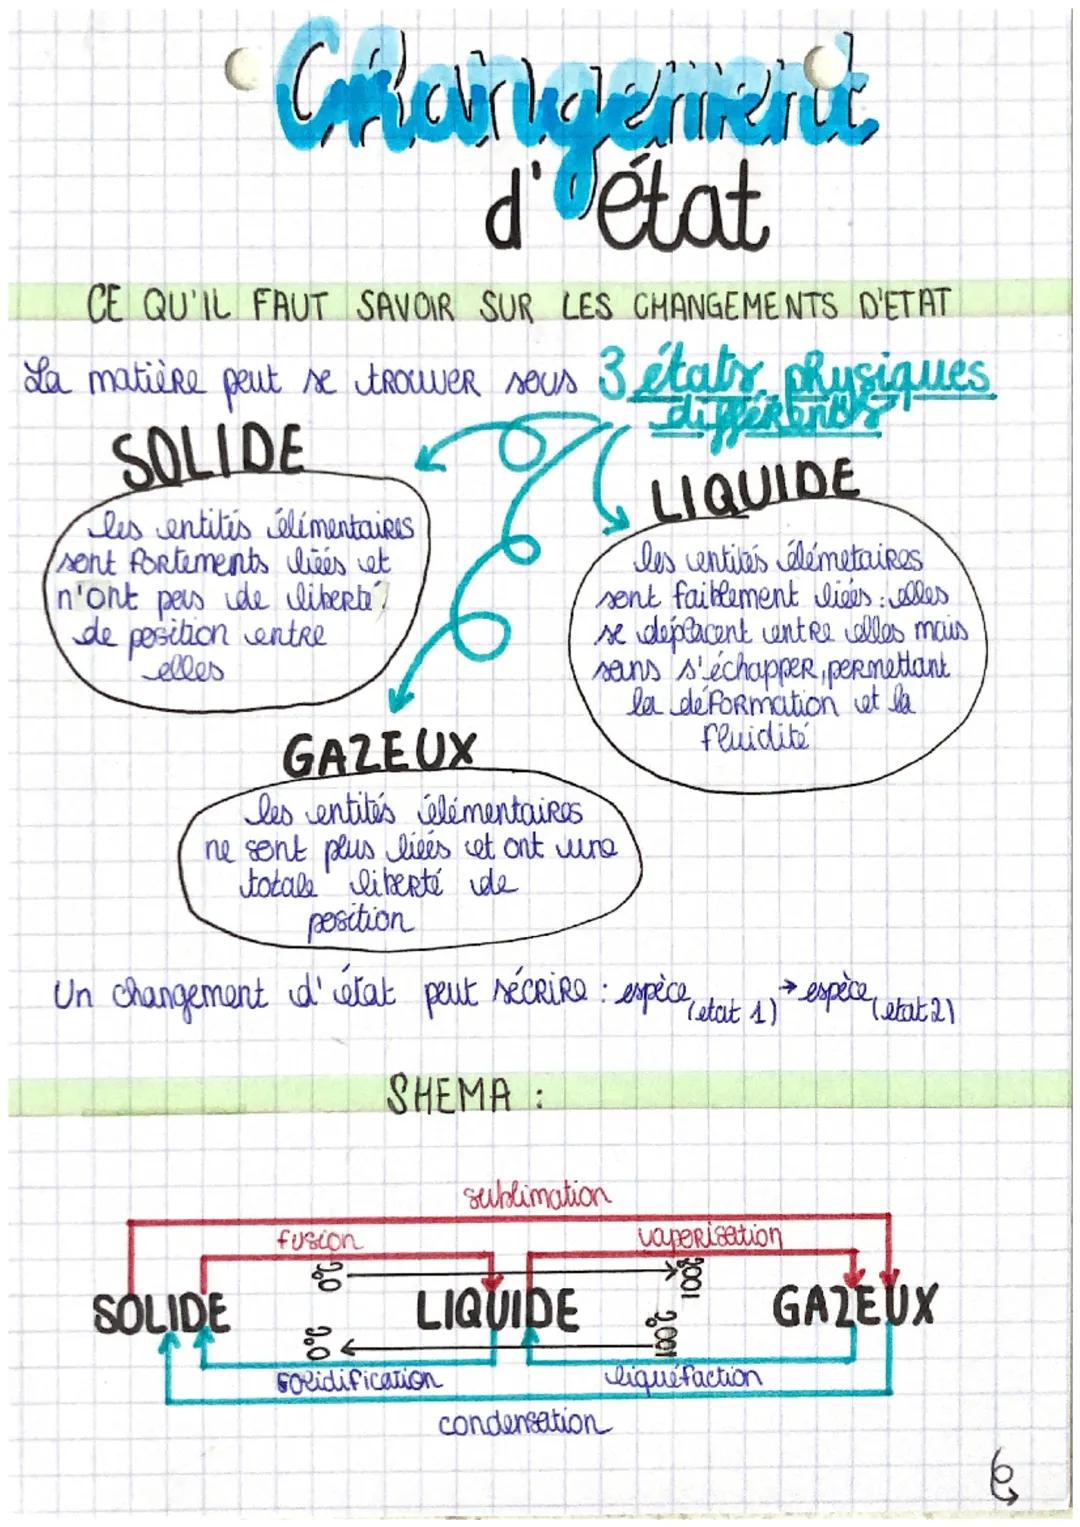 Changement
d'état
CE QU'IL FAUT SAVOIR SUR LES CHANGEMENTS D'ETAT
La matière peut se trouver sous 3 états physiques
différents
SOLIDE
les entités élémentaires
sont fortements liées et
n'ont pas de liberté
de position entre
elles
LIQUIDE
les entités élémetaires
sont faiblement liées : elles
se déplacent entre elles mais
sans s'échapper, permettant
la déformation et la
fluidité
GAZEUX
les entités élémentaires
ne sont plus liées et ont une
totale liberté de
position
Un changement d'état peut sécrire : espèce (etat 1) → espèce (etat 2)
SHEMA :
sublimation
fusion
vaporisation
0°C
100°C
SOLIDE
LIQUIDE
GAZEUX
0°C
100°C
solidification
liquéfaction
condensation